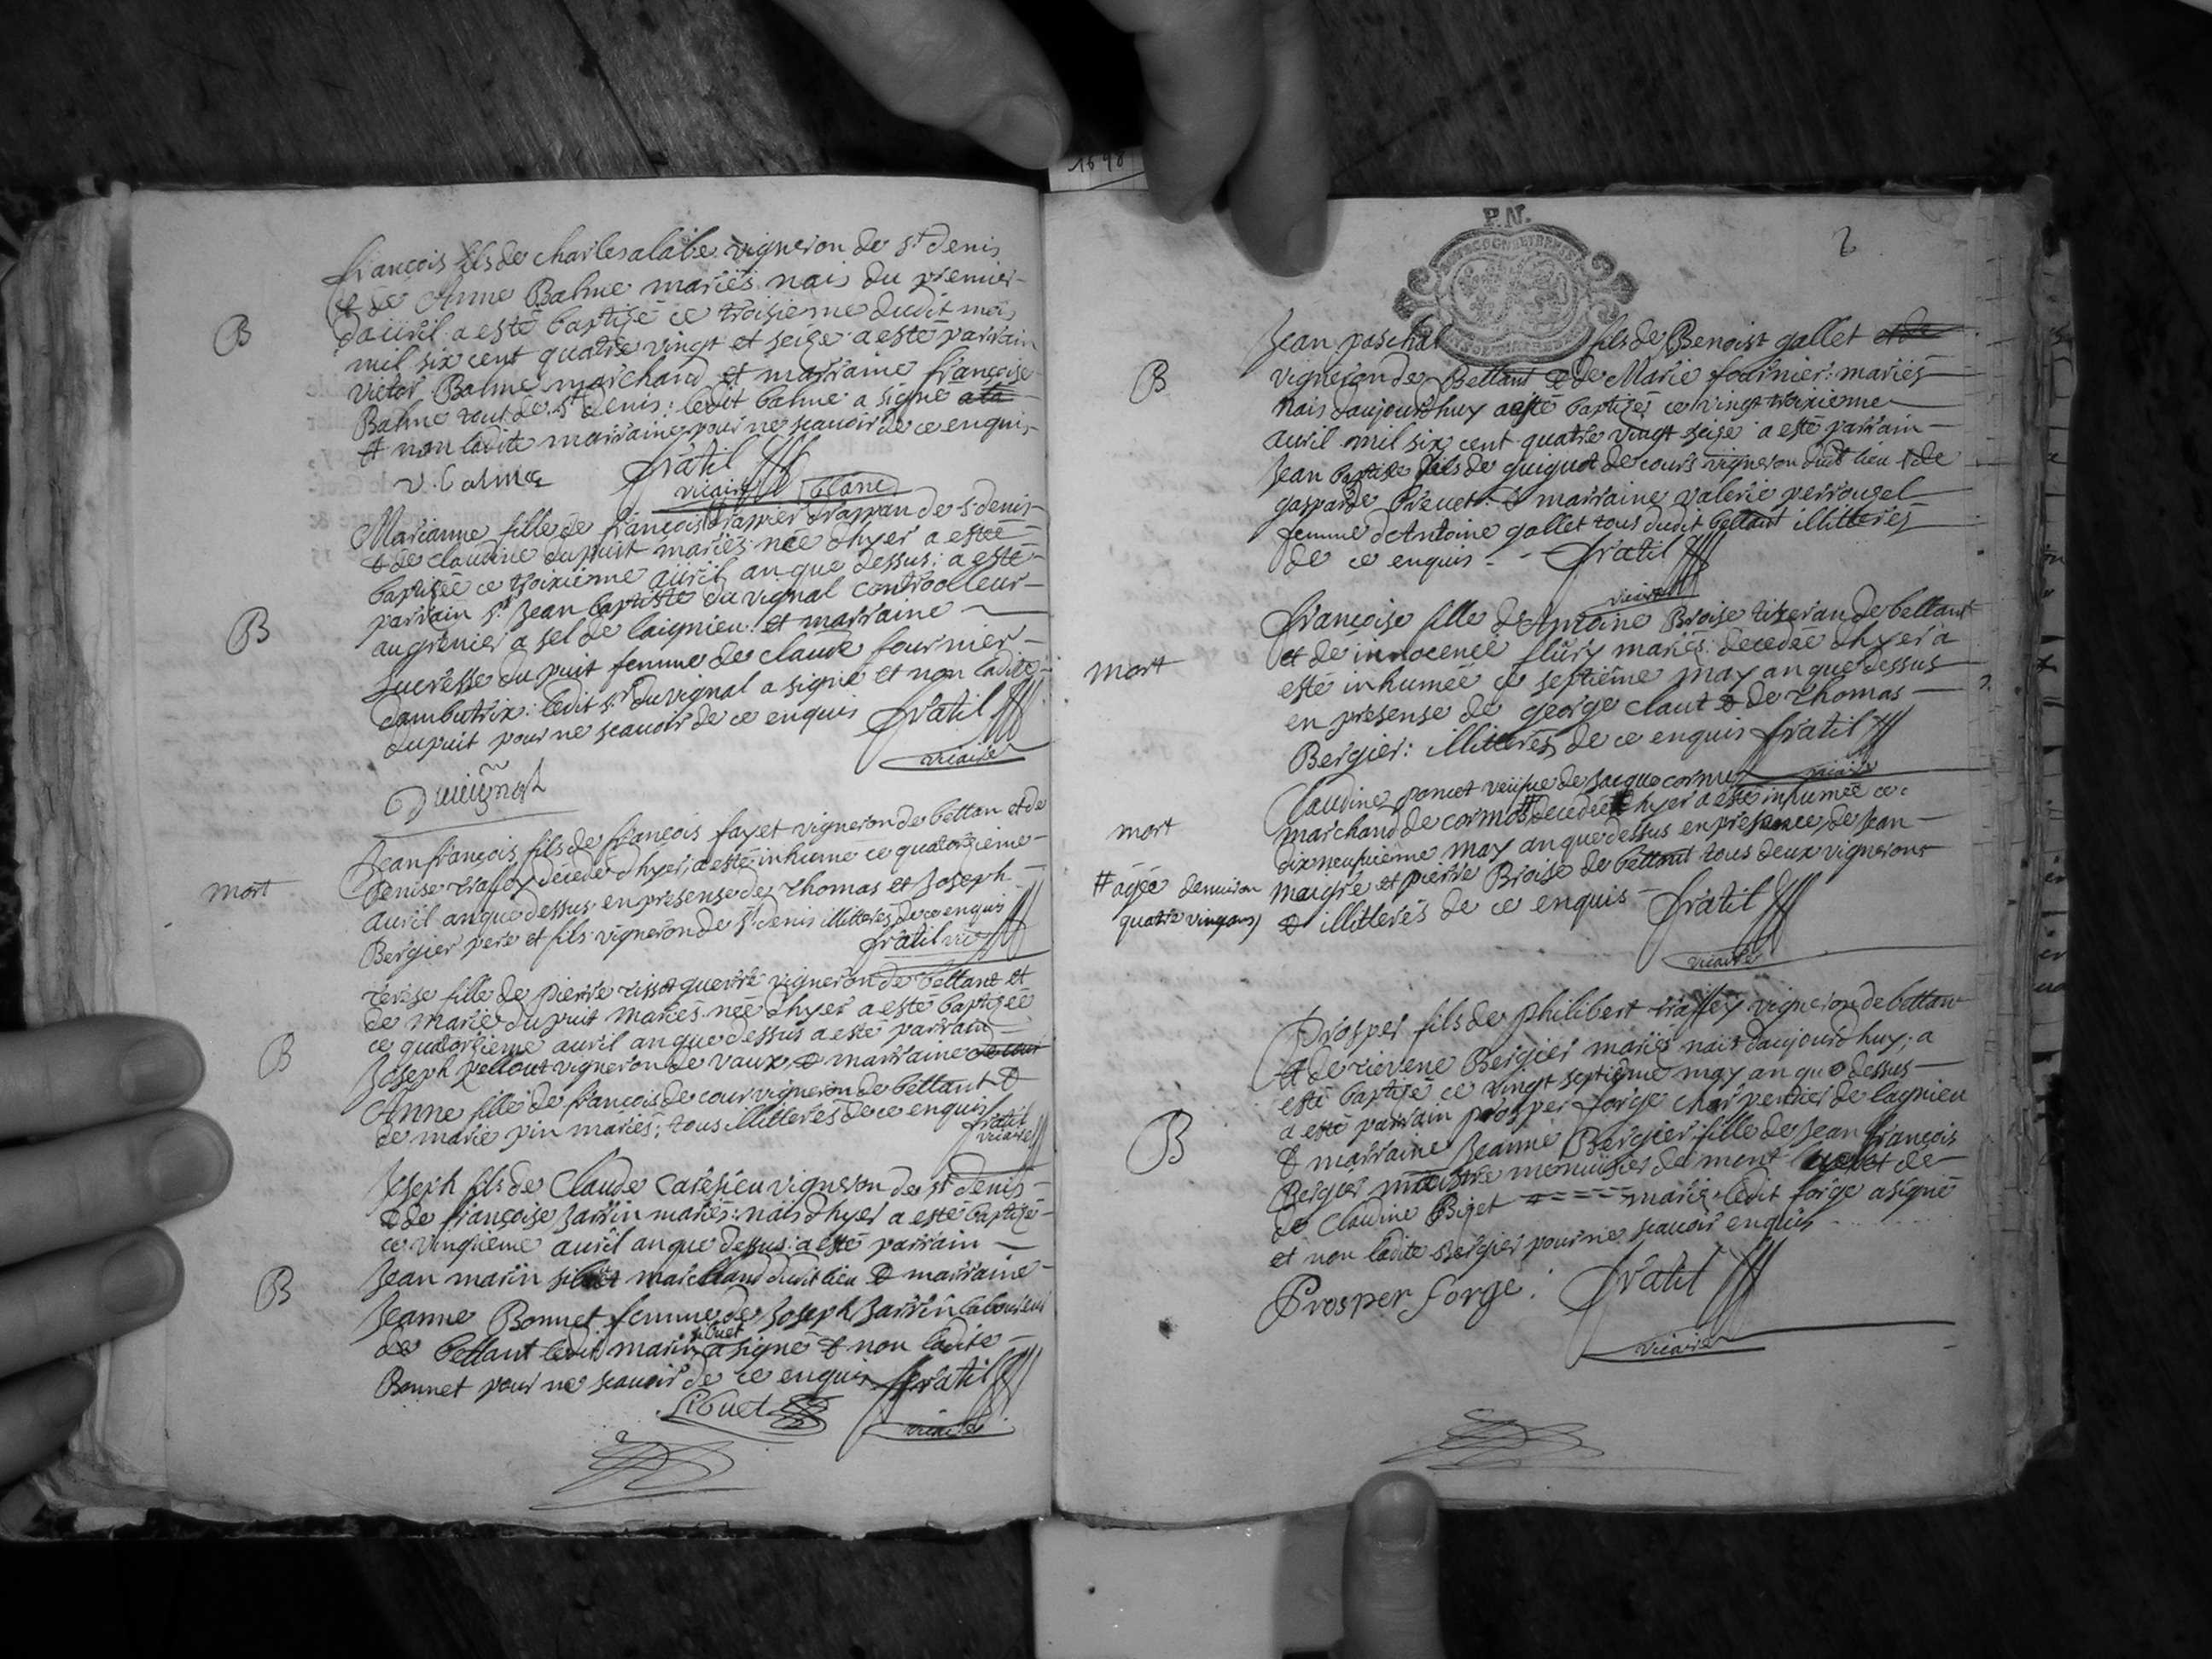 1698
françois fils de charles alabe vigneron de st denis
et de Anne Balme mariés nais du premier
dauril a esté baptizé ce troisieme dudit mois
B
mil six cent quatre vingt et seize a esté parrain
victor Balme marchand et marraine françoise
Balme tous de st denis: ledit balme a signé
et non ladite marraine pour ne scauoir de ce enquis
v. balme fratil
vicaire blanc
Marianne fille de françois drapier de st denis
& de claudine dupuit mariés née dhyer a esteé
baptiseé ce troixieme auril an que dessus: a esté
parrain sr Jean baptiste du vignal controolleur
B
au grenier a sel de laignieu: et marraine
Lucresse du puit femme de claude fournier
dambutrix: ledit sr du vignal a signé et non ladite
dupuit pour ne scauoir de ce enquis fratil
vicaire
Duuignal
Jean françois fils de françois fayet vigneron de bettan et de
denise trafey décedé dhyer, a esté inhumé ce quatorzieme
mort
auril an que dessus en presense de thomas et Joseph
Bergier pere et fils vigneron de st denis illitterés de ce enquis
fratil vic
terese fille de pierre tissot guerre vigneron de bettant et
de marie dupuit mariés neé dhyer a esté baptizeé
ce quatorzieme auril an que dessus a esté parrain
B
Joseph pellout vigneron de vaux & marraine
Anne fille de francois de cour vigneron de bettant &
de marie pin mariés; tous illitterés de ce enquis
fratil
vicaire
Joseph fils de Claude Caresieu vigneron de st denis
& de françoise Jarrin mariés: nais dhyer a esté baptizé
ce vingtieme auril an que dessus: a esté parrain
Jean marin sibuet marchand dudit lieu & marraine
B
Jeanne Bonnet femme de Joseph Jarrin laboureur
de bettant ledit marin sibuet a signé & non ladite
Bonnet pour ne scauoir de ce enquis fratil
Sibuet vicaire
P.N.
2
Jean paschal fils de Benoist gallet et de
B
vigneron de Bettant & de Marie fournier: mariés
nais daujourdhuy a esté baptizés ce vingt troixienme
auril mil six cent quatre vingt seize a esté parrain
Jean baptiste fils de guigot de cours vigneron dudit lieu & de
gasparde breuet: & marraine valerie perrousel
femme dAntoine gallet tous dudit bettant illitterés
de ce enquis fratil
vicaire
françoise fille dAntoine Broise tixeran de bettant
et de innocence flury mariés: decedeé dhyer a
mort
esté inhumeé ce septieme may an que dessus
en presense de george claut & de thomas
Bergier: illitterés de ce enquis fratil
vicaire
Claudine poncet veüfue de Jacque cornu
marchand de cormos # decedeé dhyer a esté inhumeé ce
mort
dix neufuieme may an que dessus en presence de Jean
# ageé denuiron
maigre et pierre Broise de bettant tous deux vignerons
quatre vingt ans
& illitterés de ce enquis fratil
vicaire
Prosper fils de philibert traffey vigneron de bettan
& de tievene Bergier mariés nais daujourdhuy; a
esté baptizé ce vingt septieme may an que dessus
a esté parrain prosper forge charpentier de lagnieu
B
& marraine Jeanne Bergier fille de Jean françois
Bergier maistre menuisier de mont et de
de Claudine Bizet mariés ledit forge a signé
et non ladite Bergier pour ne scauoir enquis
Prosper forge. fratil
vicaire